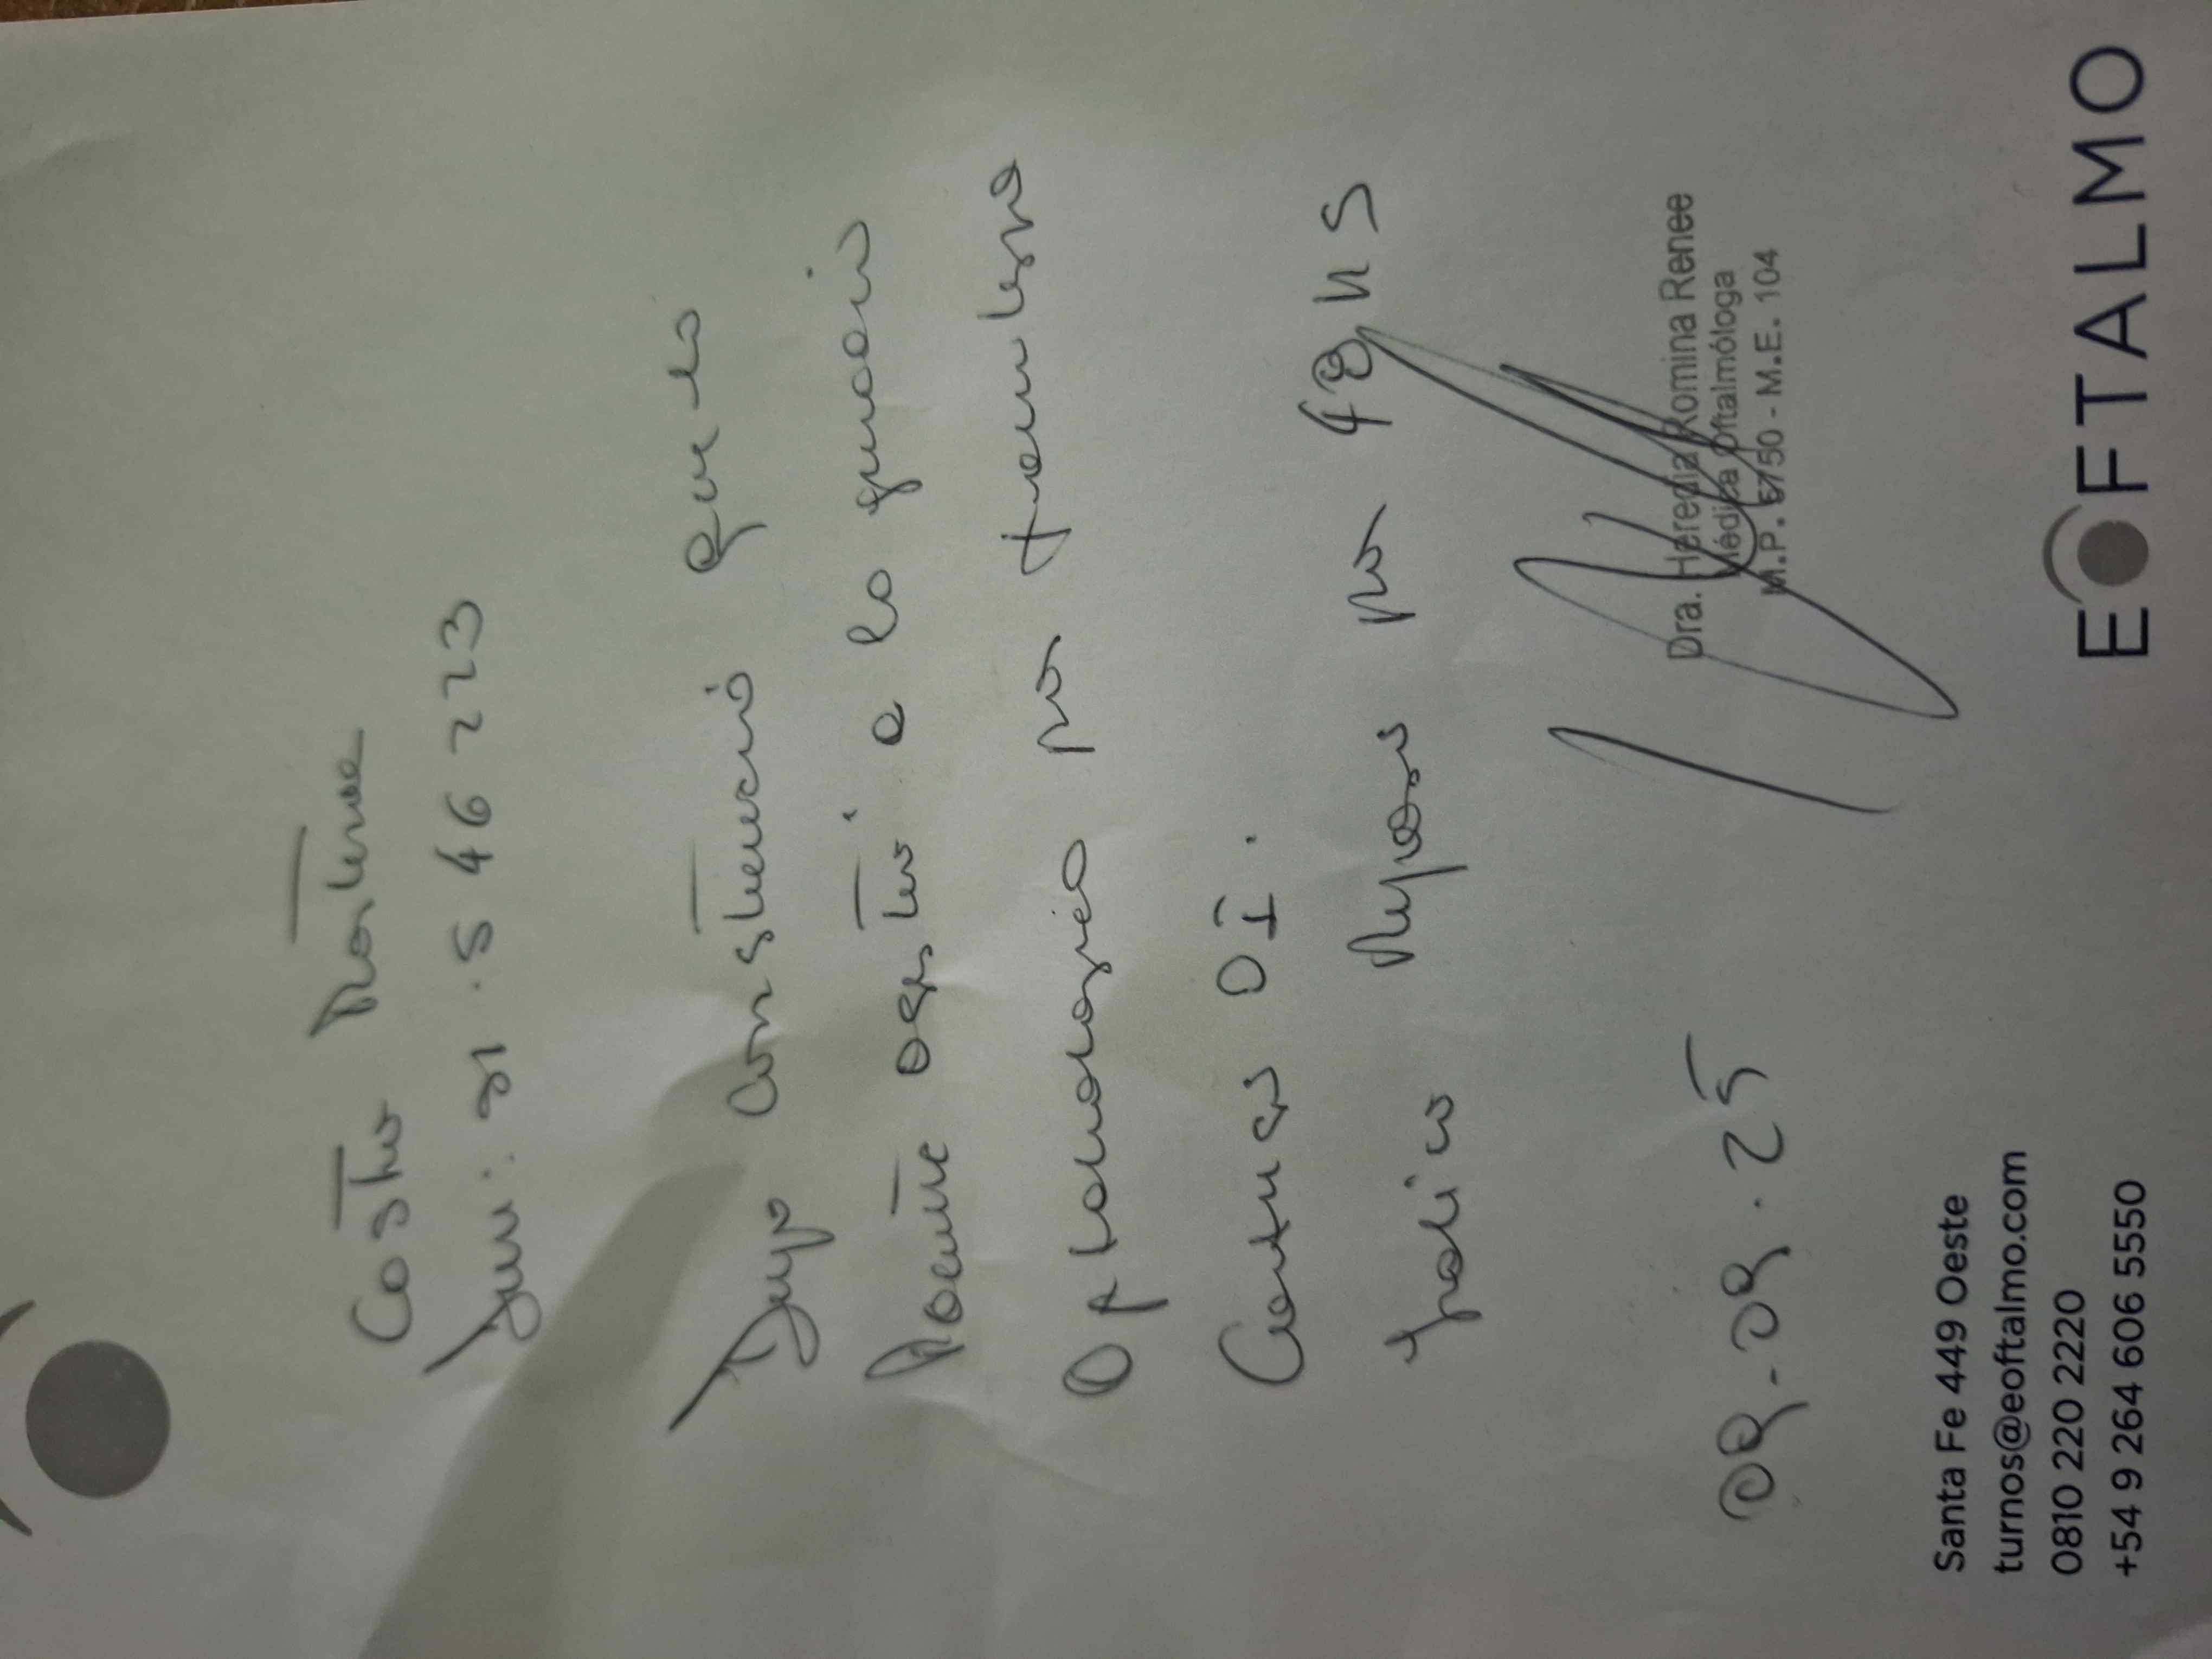 Castro Martina
Dni: 31.546 223
Dejo constancia que la
Paciente asistió a la guardia
Oftalmológica por presentar
Cuerpo OI.
Indico Reposo por 48 HS
09-09.25
Dra. Heredia Romina Renee
Médica Oftalmóloga
M.P. 5750 - M.E. 104
Santa Fe 449 Oeste
turnos@eoftalmo.com
0810 220 2220
+54 9 264 606 5550
EOFTALMO